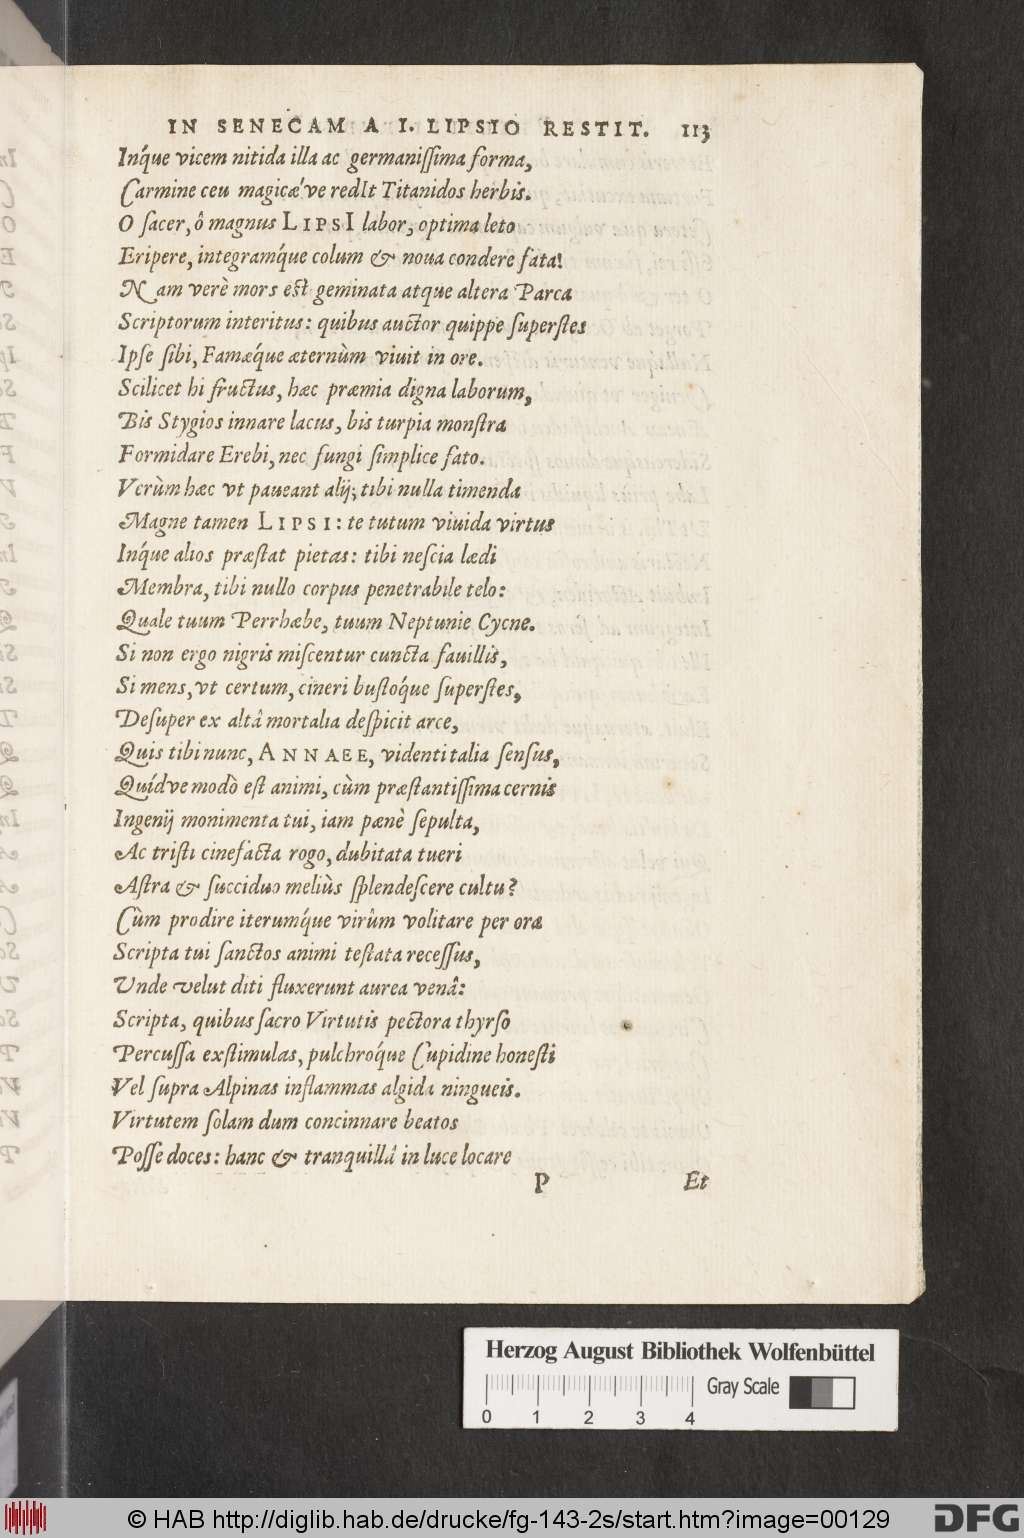 IN SENECAM A I. LIPSIO RESTIT. 113
Inq́ue vicem nitida illa ac germaniſſima forma,
Carmine ceu magicæ've redIt Titanidos herbis.
O ſacer, ô magnus LIPSI labor, optima leto
Eripere, integramq́ue colum & noua condere fata!
Nam verè mors est geminata atque altera Parca
Scriptorum interitus: quibus auctor quippe ſuperſtes
Ipſe ſibi, Famæq́ue æternùm viuit in ore.
Scilicet hi fructus, hæc præmia digna laborum,
Bis Stygios innare lacus, bis turpia monſtra
Formidare Erebi, nec fungi ſimplice fato.
Verùm hæc vt paueant alij; tibi nulla timenda
Magne tamen LIPSI: te tutum viuida virtus
Inq́ue alios præſtat pietas: tibi neſcia lædi
Membra, tibi nullo corpus penetrabile telo:
Quale tuum Perrhæbe, tuum Neptunie Cycne.
Si non ergo nigris miſcentur cuncta fauillis,
Si mens, vt certum, cineri buſtoq́ue ſuperſtes,
Deſuper ex altâ mortalia deſpicit arce,
Quis tibi nunc, ANNAEE, videnti talia ſenſus,
Quídve modò eſt animi, cùm præſtantiſſima cernis
Ingenij monimenta tui, iam pænè ſepulta,
Ac triſti cinefacta rogo, dubitata tueri
Aſtra & ſucciduo meliùs ſplendeſcere cultu?
Cùm prodire iterumq́ue virûm volitare per ora
Scripta tui ſanctos animi teſtata receſſus,
Unde velut diti fluxerunt aurea venâ:
Scripta, quibus ſacro Virtutis pectora thyrſo
Percuſſa exſtimulas, pulchroq́ue Cupidine honeſti
Vel ſupra Alpinas inflammas algida ningueis.
Virtutem ſolam dum concinnare beatos
Poſſe doces: hanc & tranquillâ in luce locare
P Et
Herzog August Bibliothek Wolfenbüttel
Gray Scale
0 1 2 3 4
© HAB http://diglib.hab.de/drucke/fg-143-2s/start.htm?image=00129
DFG